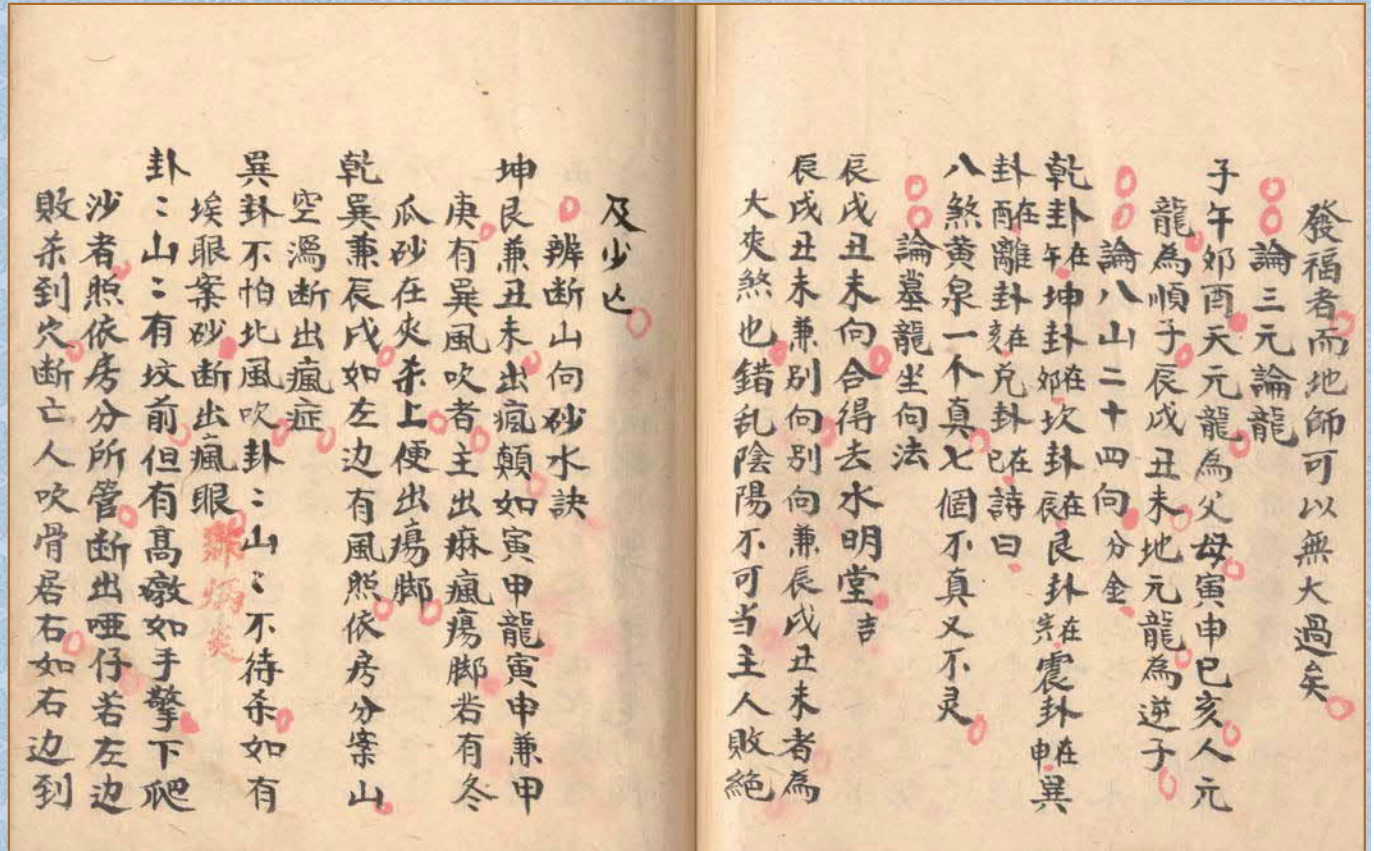 發福者而地師可以無大過矣
論三元論龍
子午夘酉天元龍為父母寅申巳亥人元
龍為順子辰戌丑未地元龍為逆子
論八山二十四向分金
乾卦在午坤卦在夘坎卦在辰艮卦在寅震卦在申巽
卦在酉離卦在亥兌卦在巳詩曰
八煞黄泉一个真七個不真又不灵
論墓龍坐向法
辰戌丑未向合得去水明堂吉
辰戌丑未兼別向別向兼辰戌丑未者為
大夾煞也錯乱陰陽不可当主人敗絕
及少亡
辨断山向砂水訣
坤艮兼丑未出瘋顛如寅甲龍寅申兼甲
庚有巽風吹者主出痳瘋瘍脚若有冬
瓜砂在夾杀上便出瘍脚
乾巽兼辰戌如左边有風照依房分案山
空濶断出瘋症
巽卦不怕北風吹卦〻山〻不待杀如有
埃眼案砂断出瘋眼
卦〻山〻有坟前但有高墩如手擎下爬
沙者照依房分所管断出啞仔若左边
敗杀到穴断亡人吹骨居右如右边到